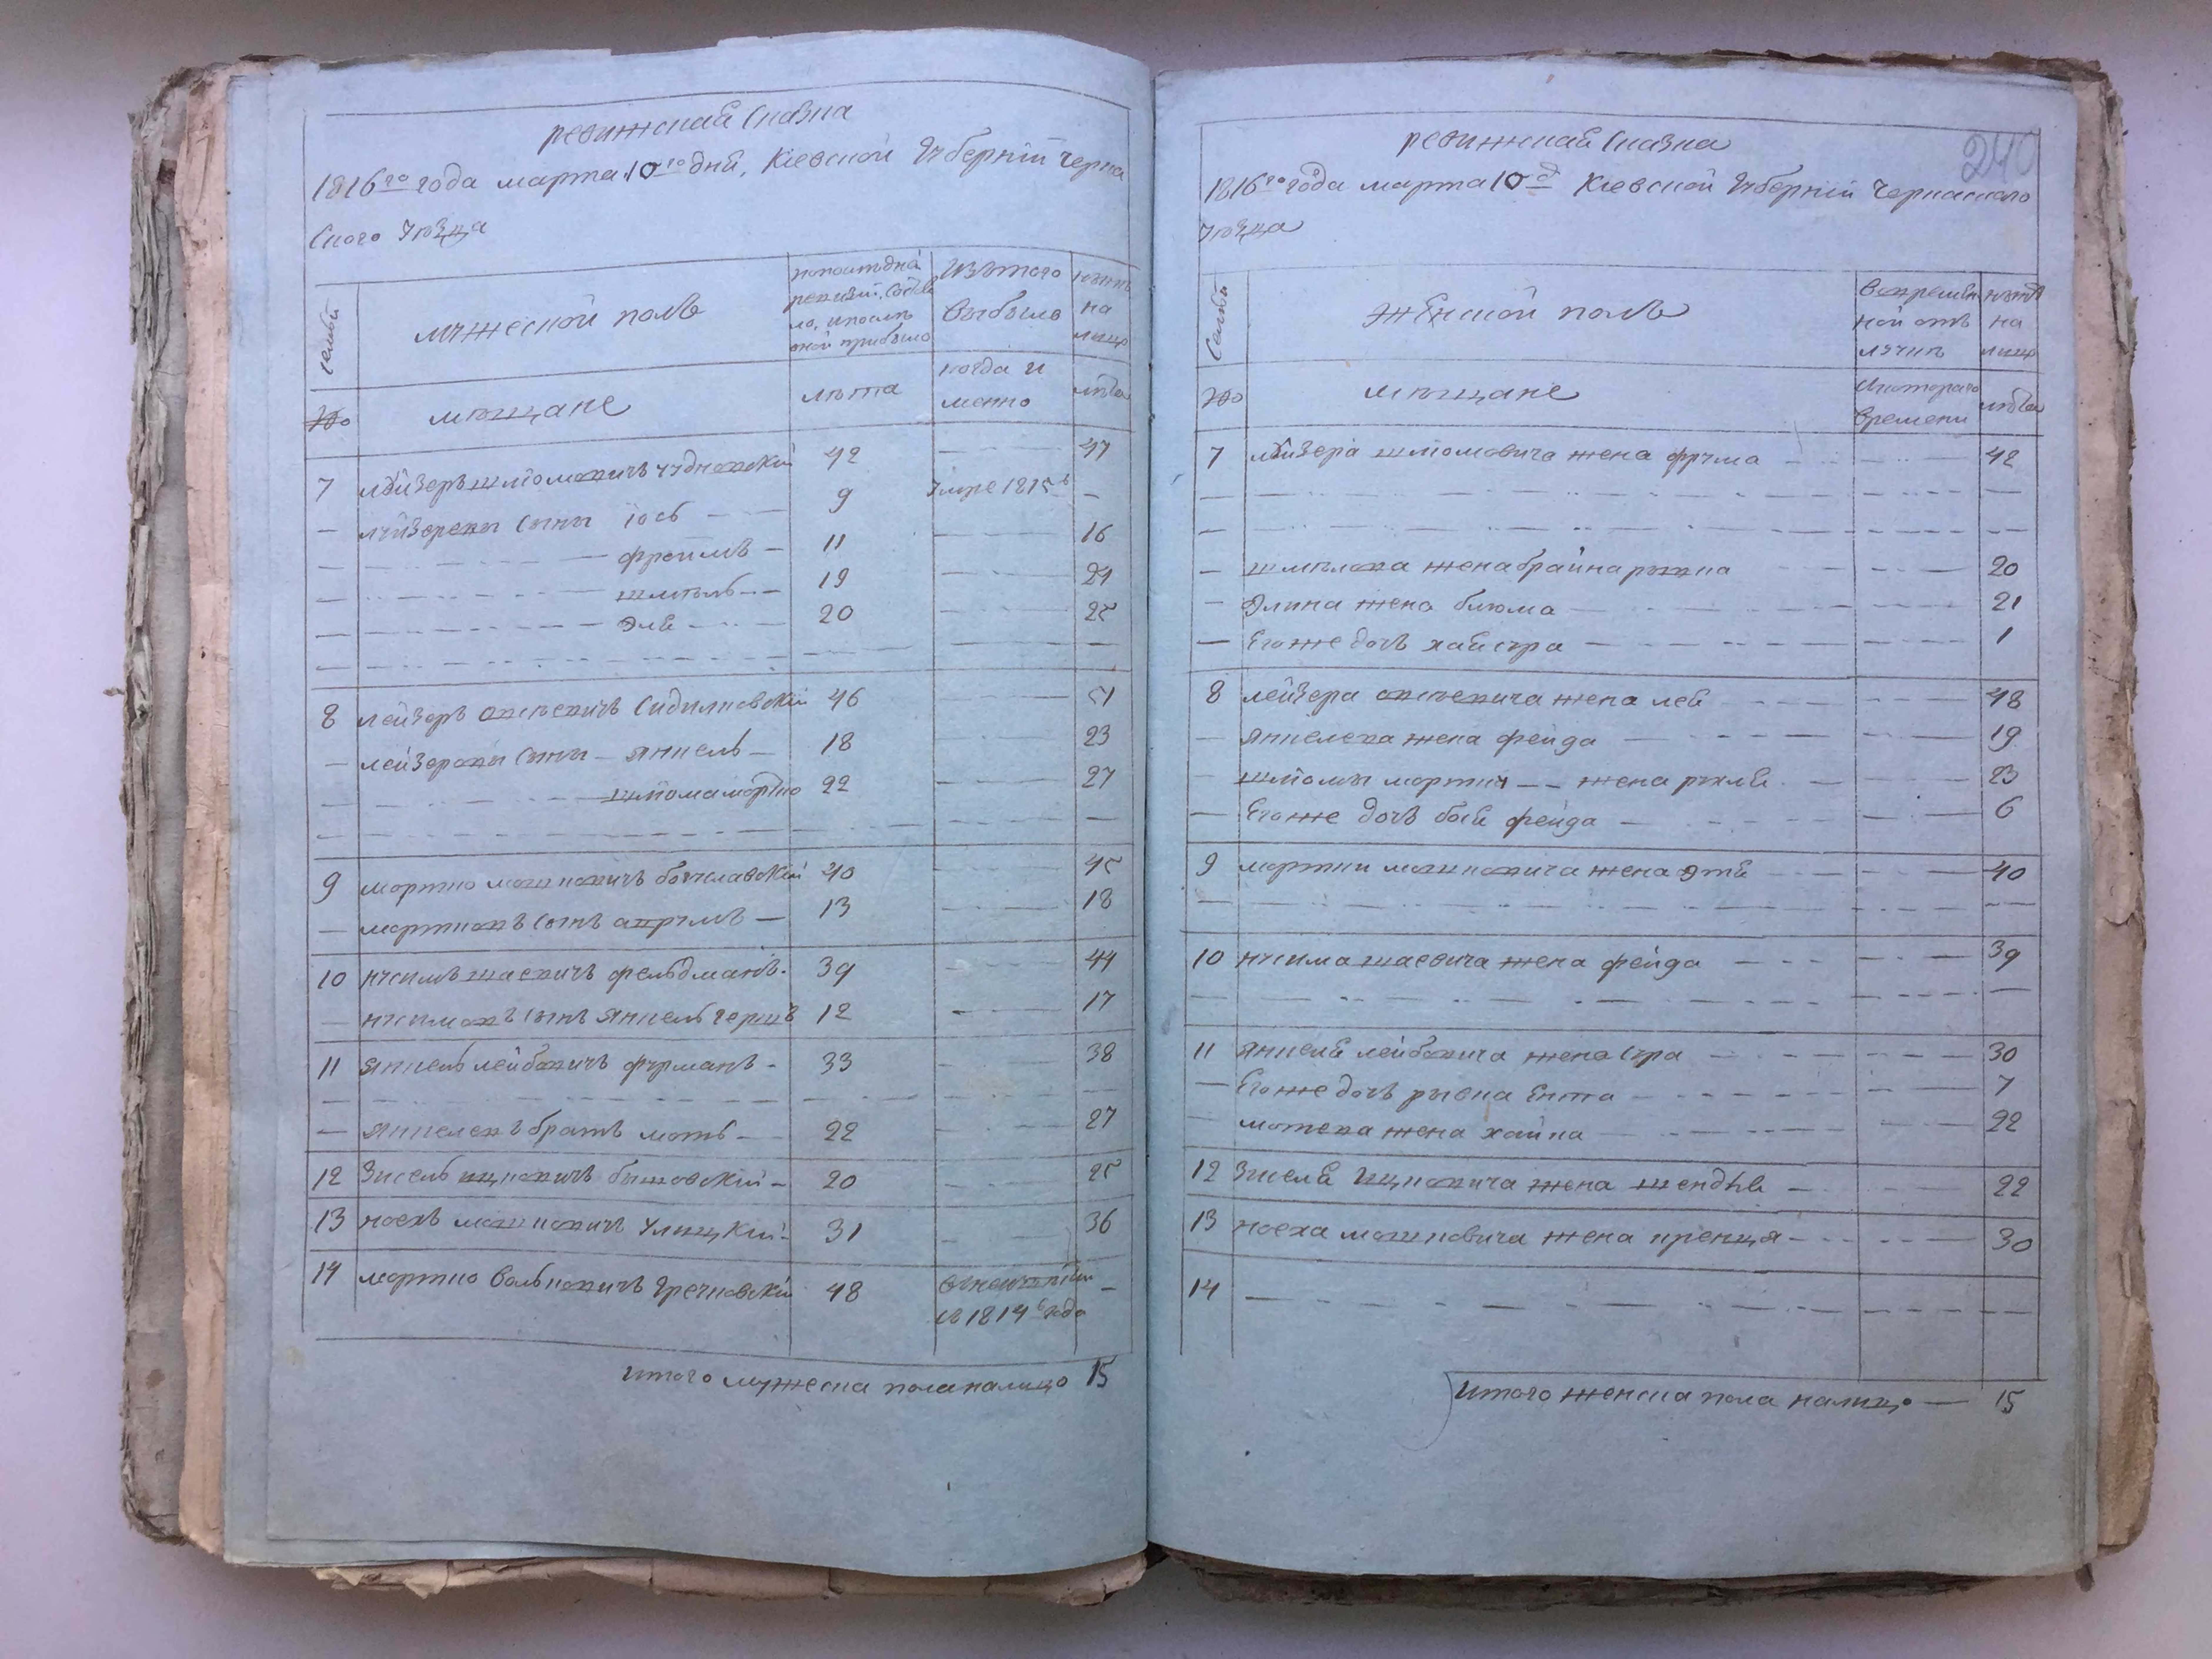 ревижская сказка
1816го года марта 10го дня, Кіевской Губерніи Черка
ского Уѣзда
семьи
мужеской полъ
попоследней
ревизіи состоя
ло, ипослѣ
оной прибыло
Изътого
выбыло
нынѣ
на
лицо
№
мещане
лѣта
когда и
лѣта
7 лейзеръ шлиомовичъ чудновскій 42 — 47
— лейзеровы сыны іось — 9 Умре 1815 —
— фроимъ — 11 — 16
— шмѣль — 19 — 24
— эля — 20 — 25
8 лейзеръ овсѣевичъ Сидилковскій 46 — 51
— лейзеровы сыны — янкель — 18 — 23
— шліома мортко 22 — 27
9 мортко мошковичъ богуславскій 40 — 45
— мортковъ сынъ аврумъ — 13 — 18
10 нусимъ шаевичъ фельдманъ 39 — 44
— нусимовъ сынъ янкель герцъ 12 — 17
11 янкель лейбовичъ фурманъ — 33 — 38
— янкелевъ братъ моть — 22 — 27
12 Зисель ицковичъ бышовскій — 20 — 25
13 ноехъ мошковичъ Улицкій — 31 — 36
14 мортко волковичъ Гречковскій 48 —
1814 года
итого мужеска пола налицо 15
240
ревижская сказка
1816го года марта 10 д Кіевской Губерніи Черкаского
Уѣзда
Семьи
женской полъ
Вовремен
ной отъ
лучкѣ
нынѣ
на
лицо
№
мещане
Скотораго
времени
лѣта
7 лейзера шлиомовича жена фрума — 42
— шмѣлова жена брайна рывка — 20
— элина жена блюма — 21
— Егоже дочь хая сура — 1
8 лейзера овсѣевича жена лея — 48
— янкелева жена фейга — 19
— шліомы мортки — жена рухля — 23
— Егоже дочь бася фейга — 6
9 мортки мошковича жена этя — 40
10 нусима шаевича жена фейга — 39
11 янкеля лейбовича жена сура — 30
— Егоже дочь рывка Ента — 7
— мотева жена хайка — 22
12 Зиселя Ицковича жена шендля — 22
13 ноеха мошковича жена пренця — 30
14 —
Итого женска пола налицо — 15